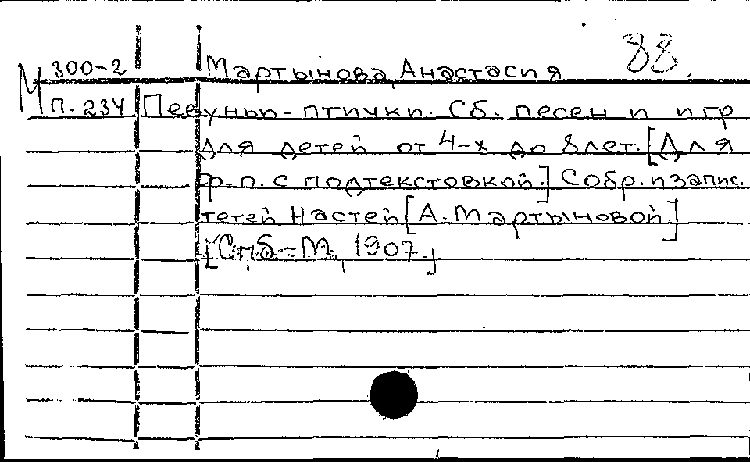 М 300-2 Мартынова, Анастасия 88.
П.234 Певуньи-птички. Сб. песен и игр
для детей от 4-х до 8 лет. [Для
ф-п. с подтекстовкой.] Собр. и запис.
тетей Настей [А. Мартыновой.]
[Спб-М, 1907.]